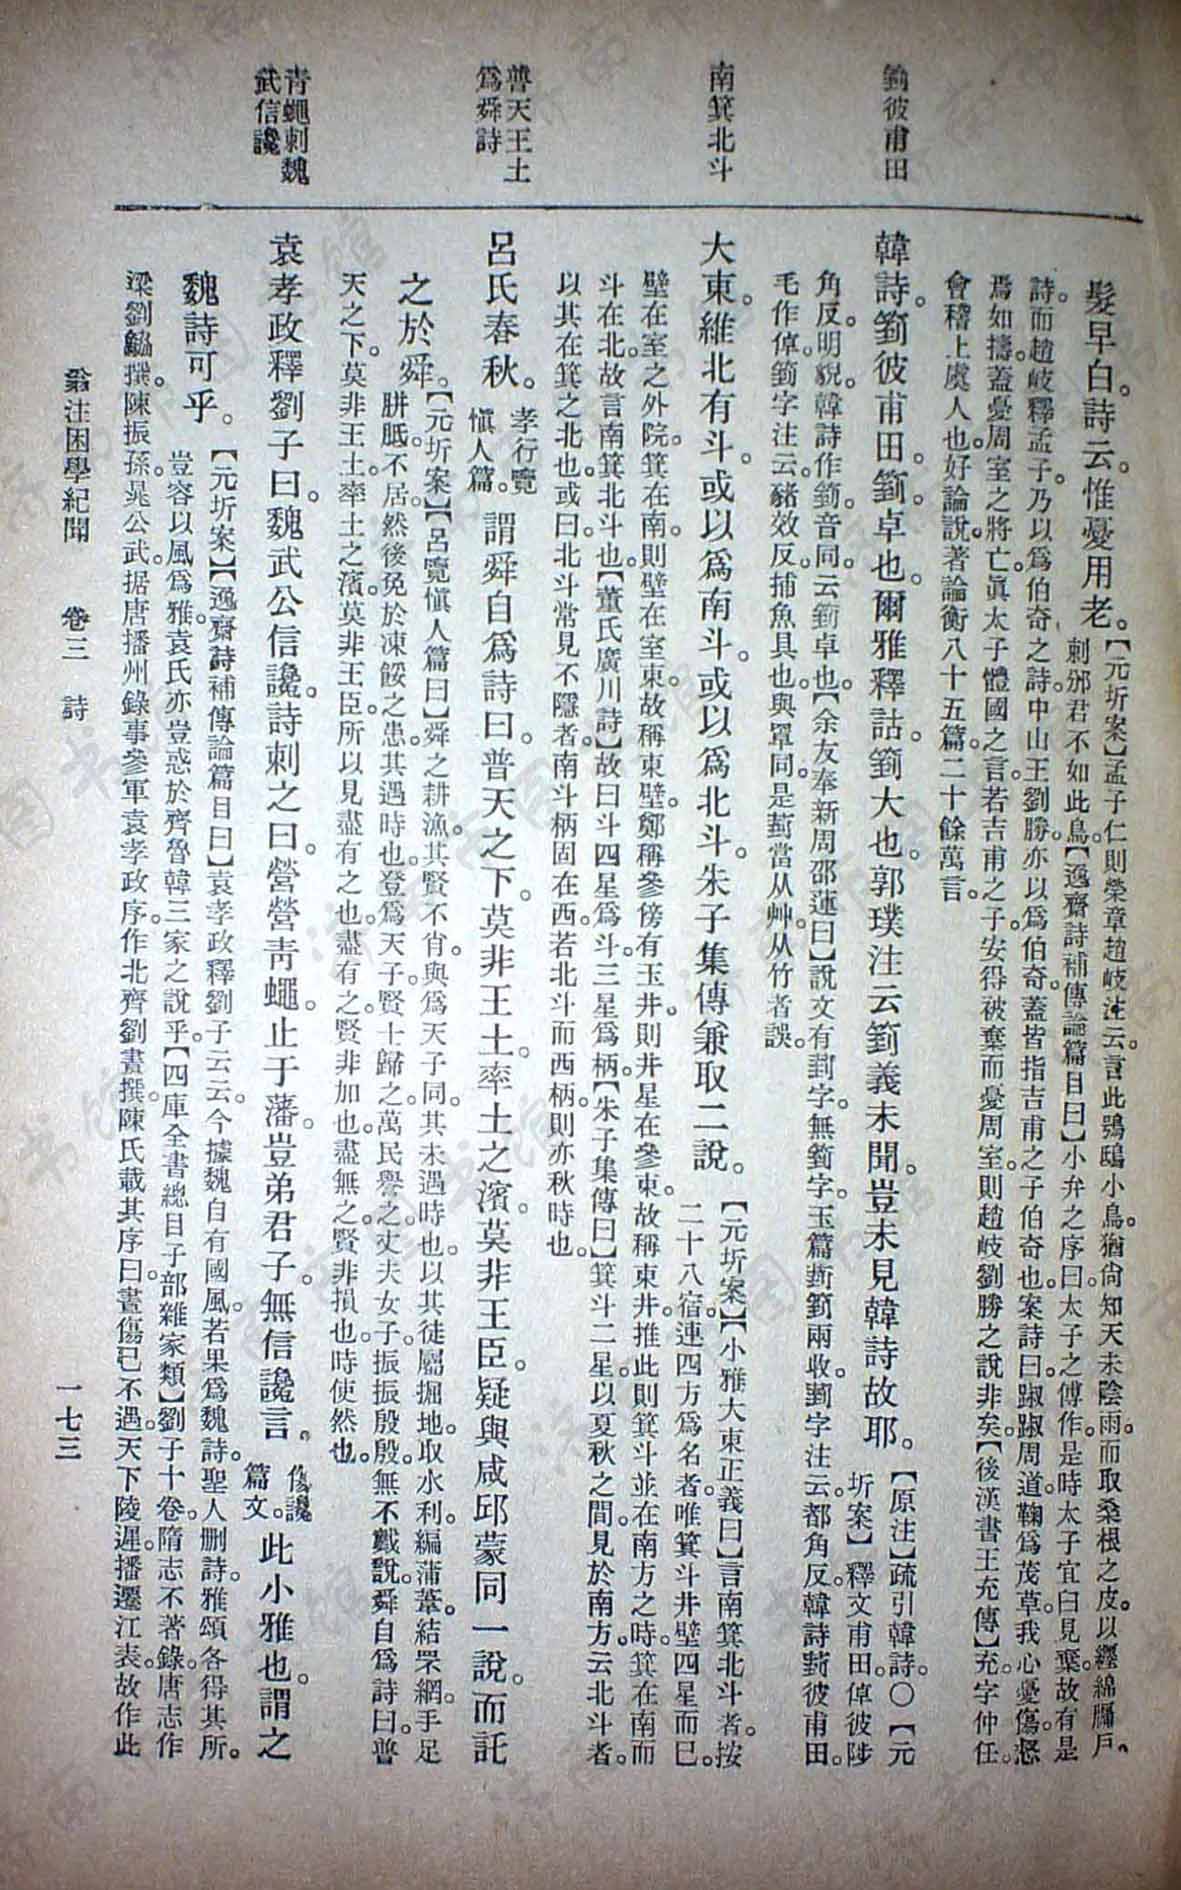 箌彼甫田
南箕北斗
普天王土
爲舜詩
青蠅刺魏
武信讒
髮早白。詩云。惟憂用老。【元圻案】孟子仁則榮章趙岐注云。言此鴞鴟小鳥。猶尙知天未陰雨。而取桑根之皮。以纏綿牖戶。
刺邠君不如此鳥。【逸齋詩補傳論篇目曰】小弁之序曰。太子之傅作。是時太子宜臼見棄。故有是
詩。而趙岐釋孟子。乃以爲伯奇之詩。中山王劉勝。亦以爲伯奇。蓋皆指吉甫之子伯奇也。案詩曰。踧踧周道。鞠爲茂草。我心憂傷。惄
焉如擣。蓋憂周室之將亡。眞太子體國之言。若吉甫之子。安得被棄而憂周室。則趙岐劉勝之說非矣。【後漢書王充傳】充。字仲任。
會稽上虞人也。好論說。著論衡八十五篇。二十餘萬言。
韓詩。箌彼甫田。箌。卓也。爾雅釋詁。箌大也。郭璞注云。箌義未聞。豈未見韓詩故耶。【原注】疏引韓詩。〇【元
圻案】釋文甫田。倬彼陟
角反。明貌。韓詩作箌。音同。云箌卓也。【余友奉新周邵蓮曰】說文有菿字。無箌字。玉篇菿箌兩收。菿字注云。都角反。韓詩菿彼甫田。
毛作倬。箌字注云。豬效反。捕魚具也。與罩同。是菿當从艸。从竹者誤。
大東。維北有斗。或以爲南斗。或以爲北斗。朱子集傳兼取二說。【元圻案】【小雅大東正義曰】言南箕北斗者。按
二十八宿。連四方爲名者。唯箕斗井壁四星而已。
壁在室之外院。箕在南。則壁在室東。故稱東壁。鄭稱參傍有玉井。則井星在參東。故稱東井。推此則箕斗並在南方之時。箕在南而
斗在北。故言南箕北斗也。【董氏廣川詩】故曰斗四星爲斗。三星爲柄。【朱子集傳曰】箕斗二星。以夏秋之間。見於南方。云北斗者。
以其在箕之北也。或曰。北斗常見不隱者。南斗柄固在西。若北斗而西柄。則亦秋時也。
呂氏春秋。孝行覽
愼人篇。謂舜自爲詩曰。普天之下。莫非王土。率土之濱。莫非王臣。疑與咸邱蒙同一說。而託
之於舜。【元圻案】【呂覽愼人篇曰】舜之耕漁。其賢不肖。與爲天子同。其未遇時也。以其徒屬掘地。取水利。編蒲葦。結罘網。手足
胼胝不居。然後免於凍餒之患。其遇時也。登爲天子。賢士歸之。萬民譽之。丈夫女子。振振殷殷。無不戴說。舜自爲詩曰。普
天之下。莫非王土。率土之濱。莫非王臣。所以見盡有之也。盡有之。賢非加也。盡無之。賢非損也。時使然也。
袁孝政釋劉子曰。魏武公信讒。詩刺之曰。營營靑蠅。止于藩。豈弟君子。無信讒言。傷讒
篇文。此小雅也。謂之
魏詩可乎。【元圻案】【逸齋詩補傳論篇目曰】袁孝政釋劉子云云。今據魏自有國風。若果爲魏詩。聖人刪詩。雅頌各得其所。
豈容以風爲雅。袁氏亦豈惑於齊魯韓三家之說乎。【四庫全書總目子部雜家類】劉子十卷。隋志不著錄。唐志作
梁劉勰撰。陳振孫。晁公武。据唐播州錄事參軍袁孝政序。作北齊劉晝撰。陳氏載其序曰。晝傷己不遇。天下陵遲。播遷江表。故作此
翁注困學紀聞　卷三　詩　一七三